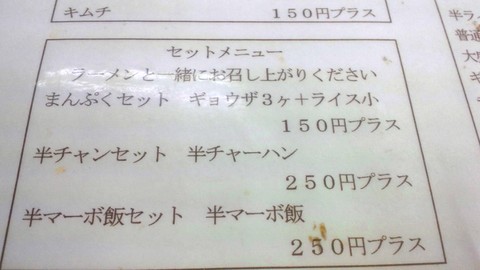 キムチ　　　　１５０円プラス
セットメニュー
ラーメンと一緒にお召し上がりください
まんぷくセット　ギョウザ３ヶ＋ライス小
１５０円プラス
半チャンセット　半チャーハン
２５０円プラス
半マーボ飯セット　半マーボ飯
２５０円プラス
半ラ
普通